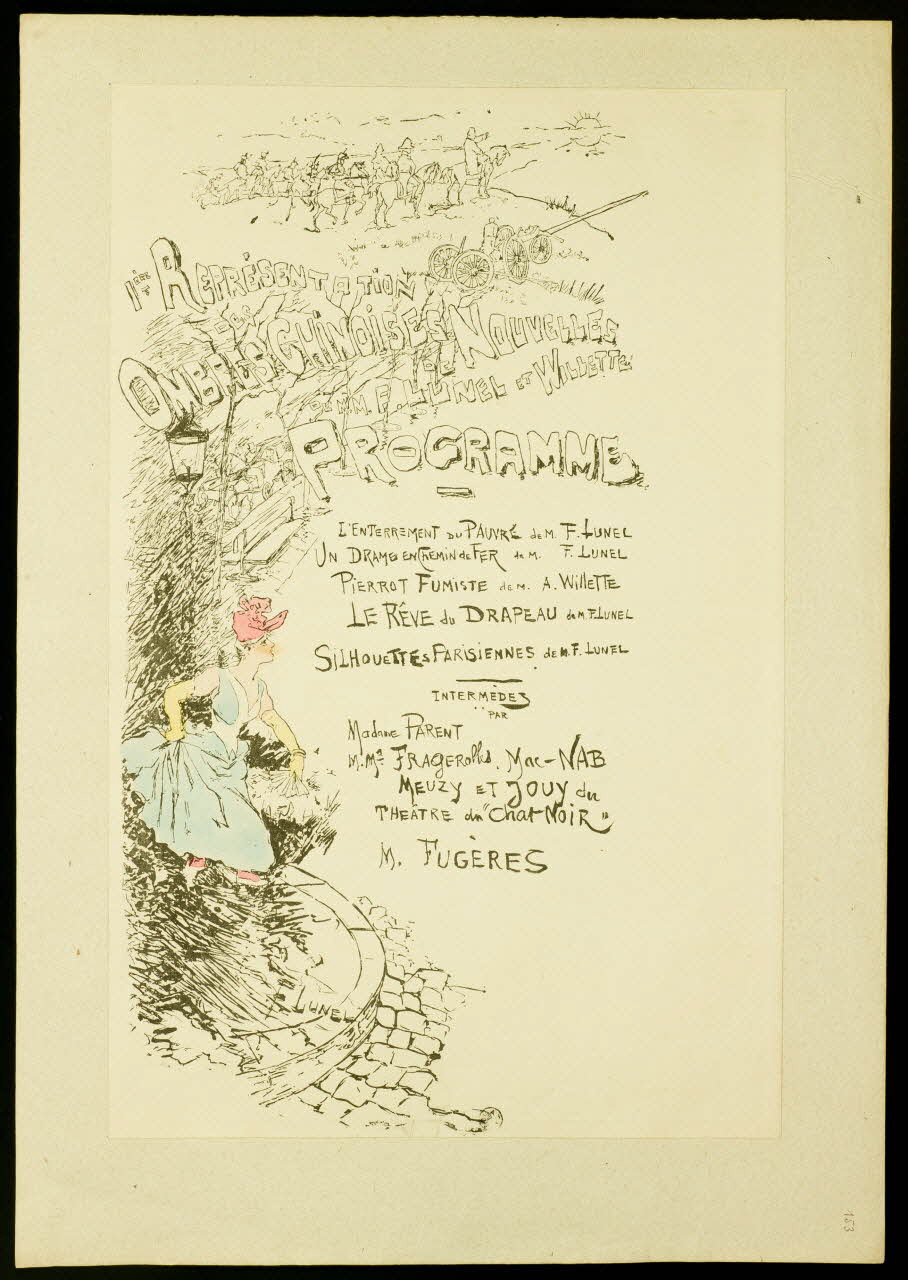 1ère Représentation
des
Ombres Chinoises Nouvelles
de MM. F. Lunel et Willette
PROGRAMME
L'Enterrement du Pauvre de M. F. Lunel
Un Drame en Chemin de Fer de M. F. Lunel
Pierrot Fumiste de M. A. Willette
Le Rêve du Drapeau de M. F. Lunel
Silhouettes Parisiennes de M. F. Lunel
Intermèdes
par
Madame Parent
Fragerolles. Mac-Nab
Meuzy et Jouy du
Théâtre du "Chat Noir"
M. Fugères
Lunel
153